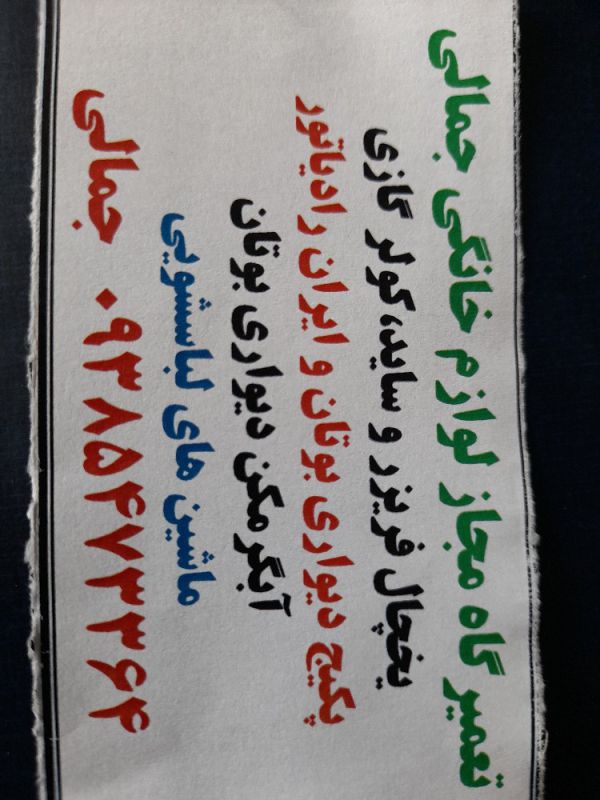 تعمیرگاه مجاز لوازم خانگی جمالی
یخچال فریزر و ساید، کولر گازی
پکیج دیواری بوتان و ایران رادیاتور
آبگرمکن دیواری بوتان
ماشین های لباسشویی
۰۹۳۸۵۴۷۳۳۶۴ جمالی